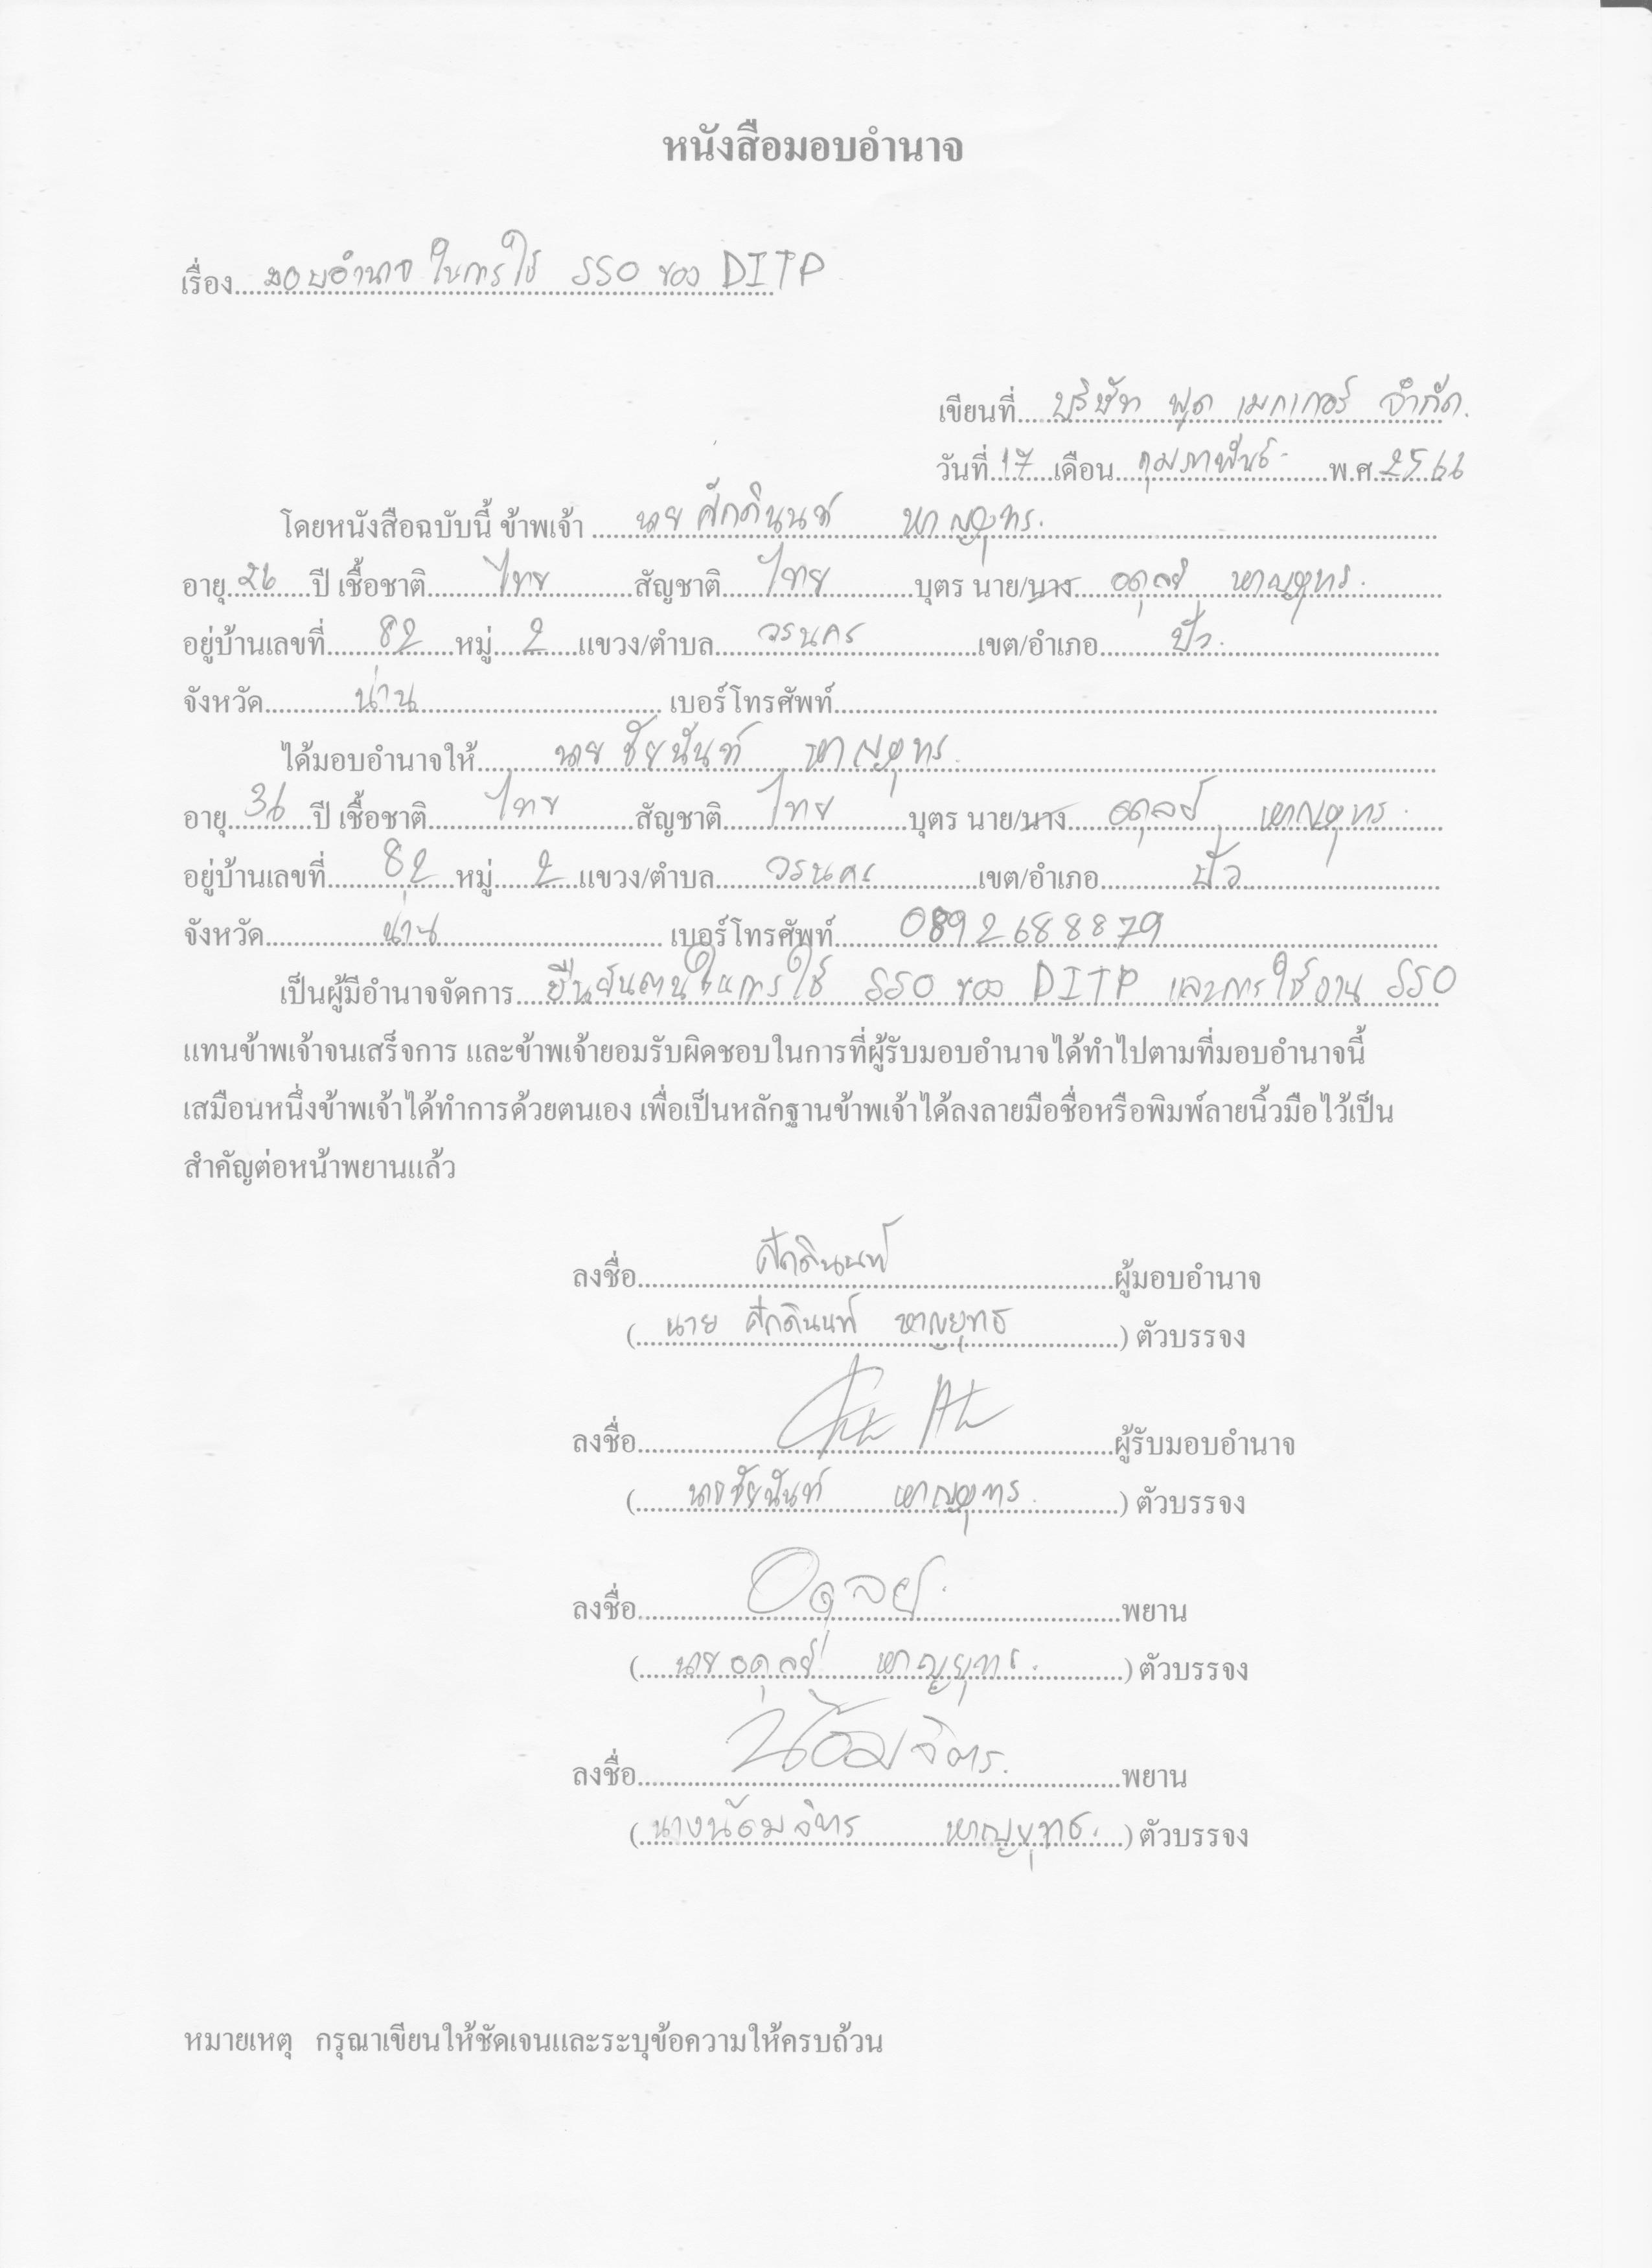 หนังสือมอบอำนาจ
เรื่อง มอบอำนาจ ในการใช้ SSO ของ DITP
เขียนที่ บริษัท ฟูด เมกเกอร์ จำกัด.
วันที่ 17 เดือน กุมภาพันธ์ พ.ศ. 2566
โดยหนังสือฉบับนี้ ข้าพเจ้า นาย ศักดินนท์ หาญยุทธ.
อายุ 26 ปี เชื้อชาติ ไทย สัญชาติ ไทย บุตร นาย/นาง อดุลย์ หาญยุทธ.
อยู่บ้านเลขที่ 82 หมู่ 2 แขวง/ตำบล วรนคร เขต/อำเภอ ปัว.
จังหวัด น่าน เบอร์โทรศัพท์
ได้มอบอำนาจให้ นาย ชัยนันท์ หาญยุทธ.
อายุ 36 ปี เชื้อชาติ ไทย สัญชาติ ไทย บุตร นาย/นาง อดุลย์ หาญยุทธ.
อยู่บ้านเลขที่ 82 หมู่ 2 แขวง/ตำบล วรนคร เขต/อำเภอ ปัว
จังหวัด น่าน เบอร์โทรศัพท์ 0892688879
เป็นผู้มีอำนาจจัดการ ยืนยันตนในการใช้ SSO ของ DITP และการใช้งาน SSO
แทนข้าพเจ้าจนเสร็จการ และข้าพเจ้ายอมรับผิดชอบในการที่ผู้รับมอบอำนาจได้ทำไปตามที่มอบอำนาจนี้
เสมือนหนึ่งข้าพเจ้าได้ทำการด้วยตนเอง เพื่อเป็นหลักฐานข้าพเจ้าได้ลงลายมือชื่อหรือพิมพ์ลายนิ้วมือไว้เป็น
สำคัญต่อหน้าพยานแล้ว
ลงชื่อ ศักดินนท์ ผู้มอบอำนาจ
(นาย ศักดินนท์ หาญยุทธ) ตัวบรรจง
ลงชื่อ ผู้รับมอบอำนาจ
(นายชัยนันท์ หาญยุทธ.) ตัวบรรจง
ลงชื่อ อดุลย์. พยาน
(นายอดุลย์ หาญยุทธ.) ตัวบรรจง
ลงชื่อ น้อมจิตร. พยาน
(นางน้อมจิตร หาญยุทธ.) ตัวบรรจง
หมายเหตุ กรุณาเขียนให้ชัดเจนและระบุข้อความให้ครบถ้วน